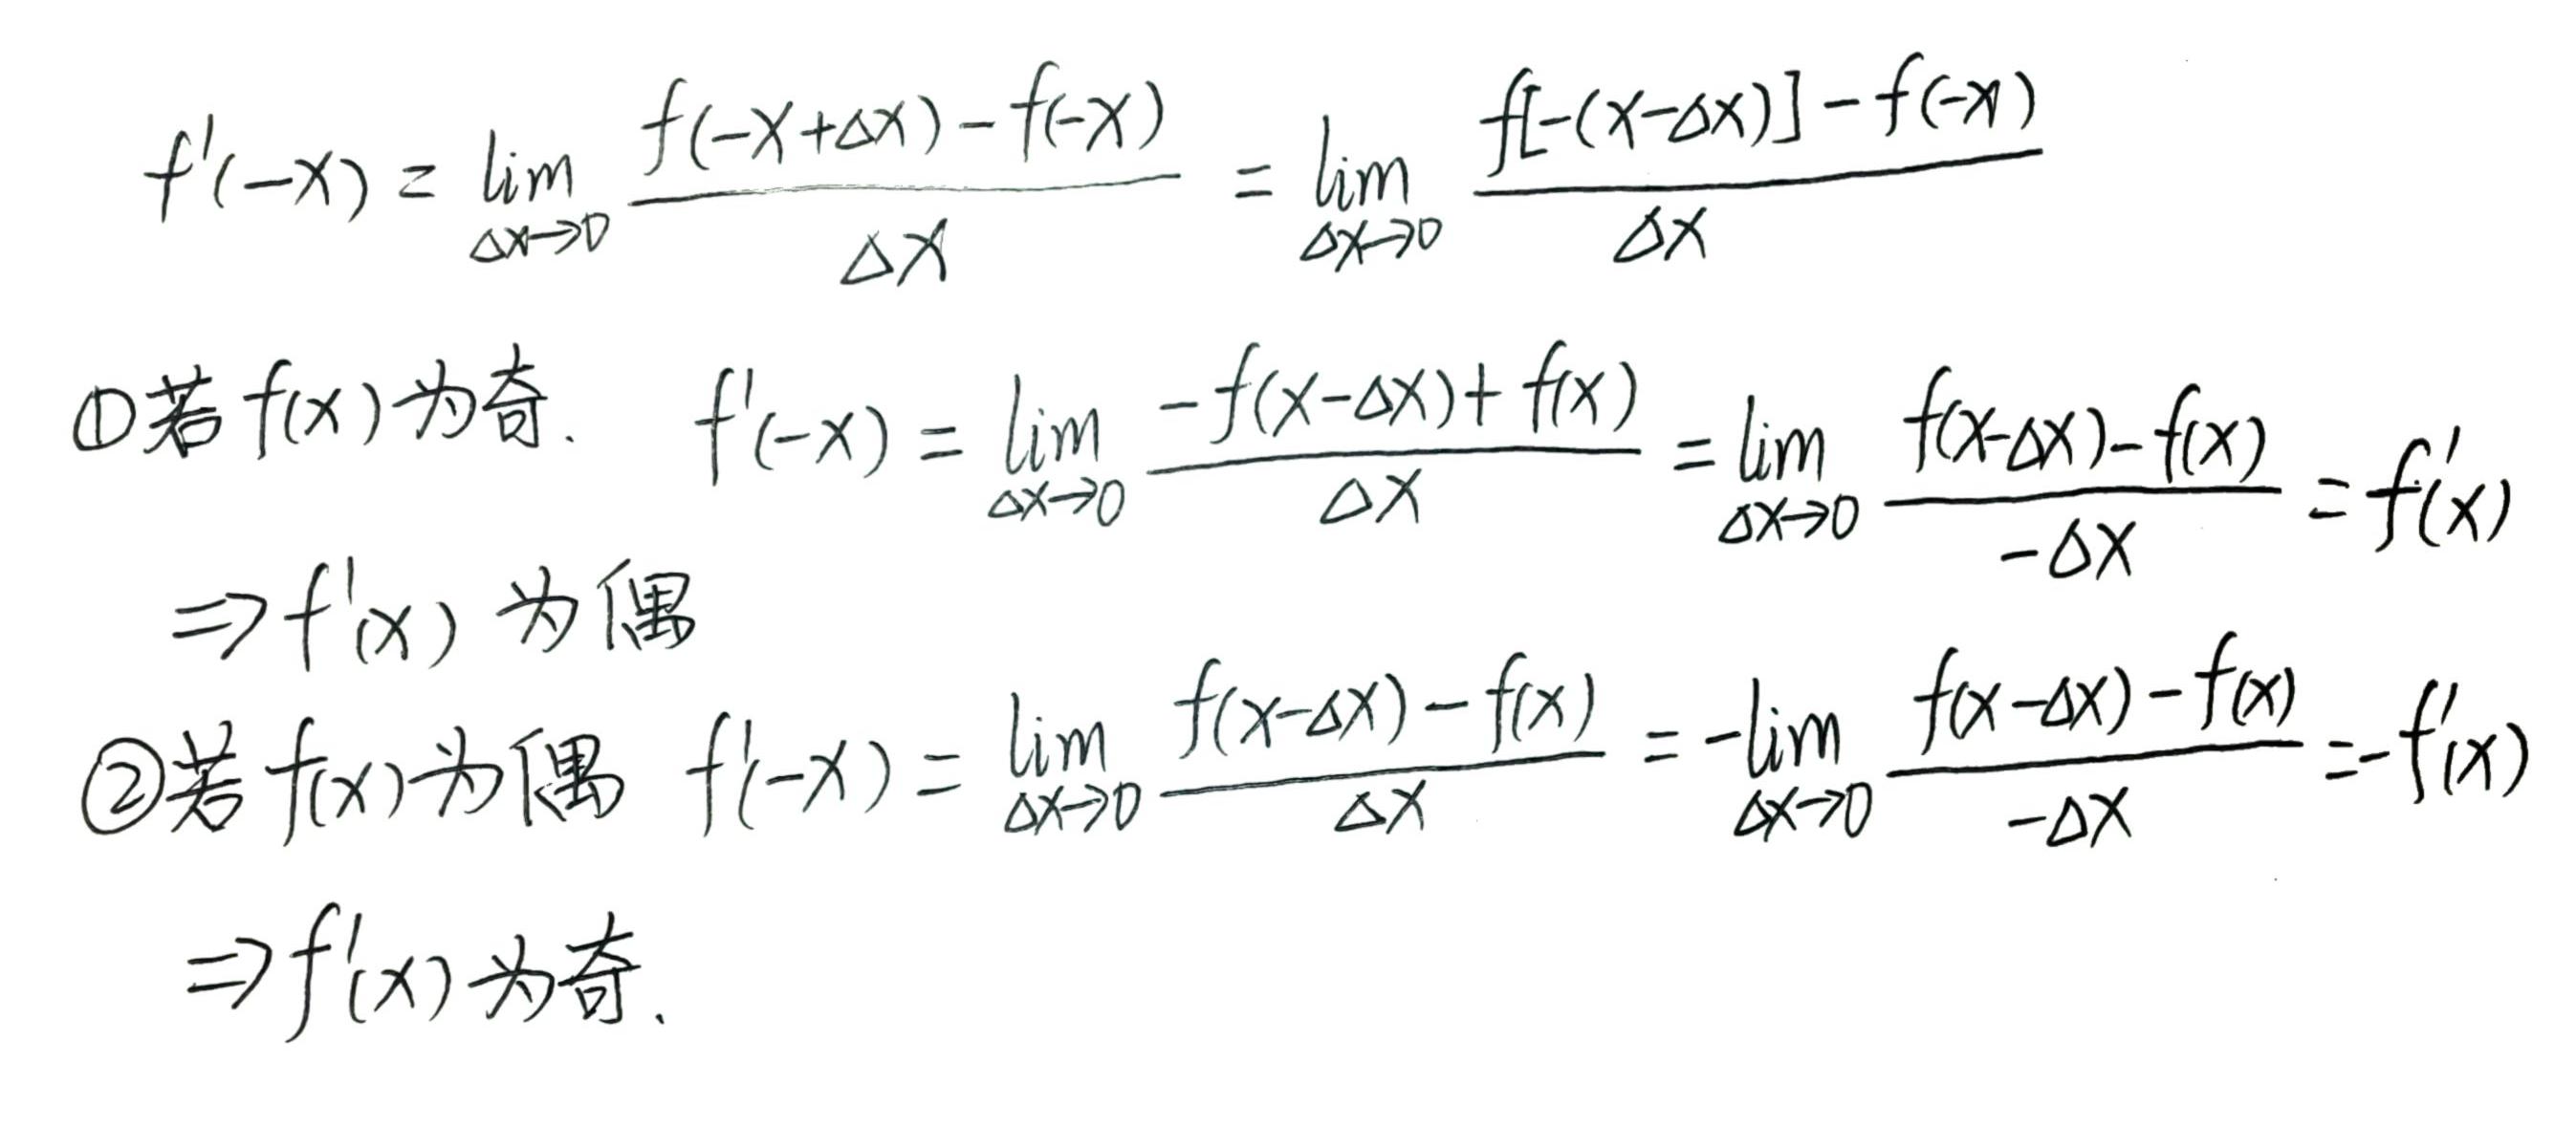 f'(-x) = lim_{Δx→0} \frac{f(-x+Δx)-f(-x)}{Δx} = lim_{Δx→0} \frac{f[-(x-Δx)]-f(-x)}{Δx}
①若f(x)为奇. f'(-x) = lim_{Δx→0} \frac{-f(x-Δx)+f(x)}{Δx} = lim_{Δx→0} \frac{f(x-Δx)-f(x)}{-Δx} = f'(x)
⇒f'(x) 为偶
②若f(x)为偶 f'(-x) = lim_{Δx→0} \frac{f(x-Δx)-f(x)}{Δx} = -lim_{Δx→0} \frac{f(x-Δx)-f(x)}{-Δx} = -f'(x)
⇒f'(x)为奇.